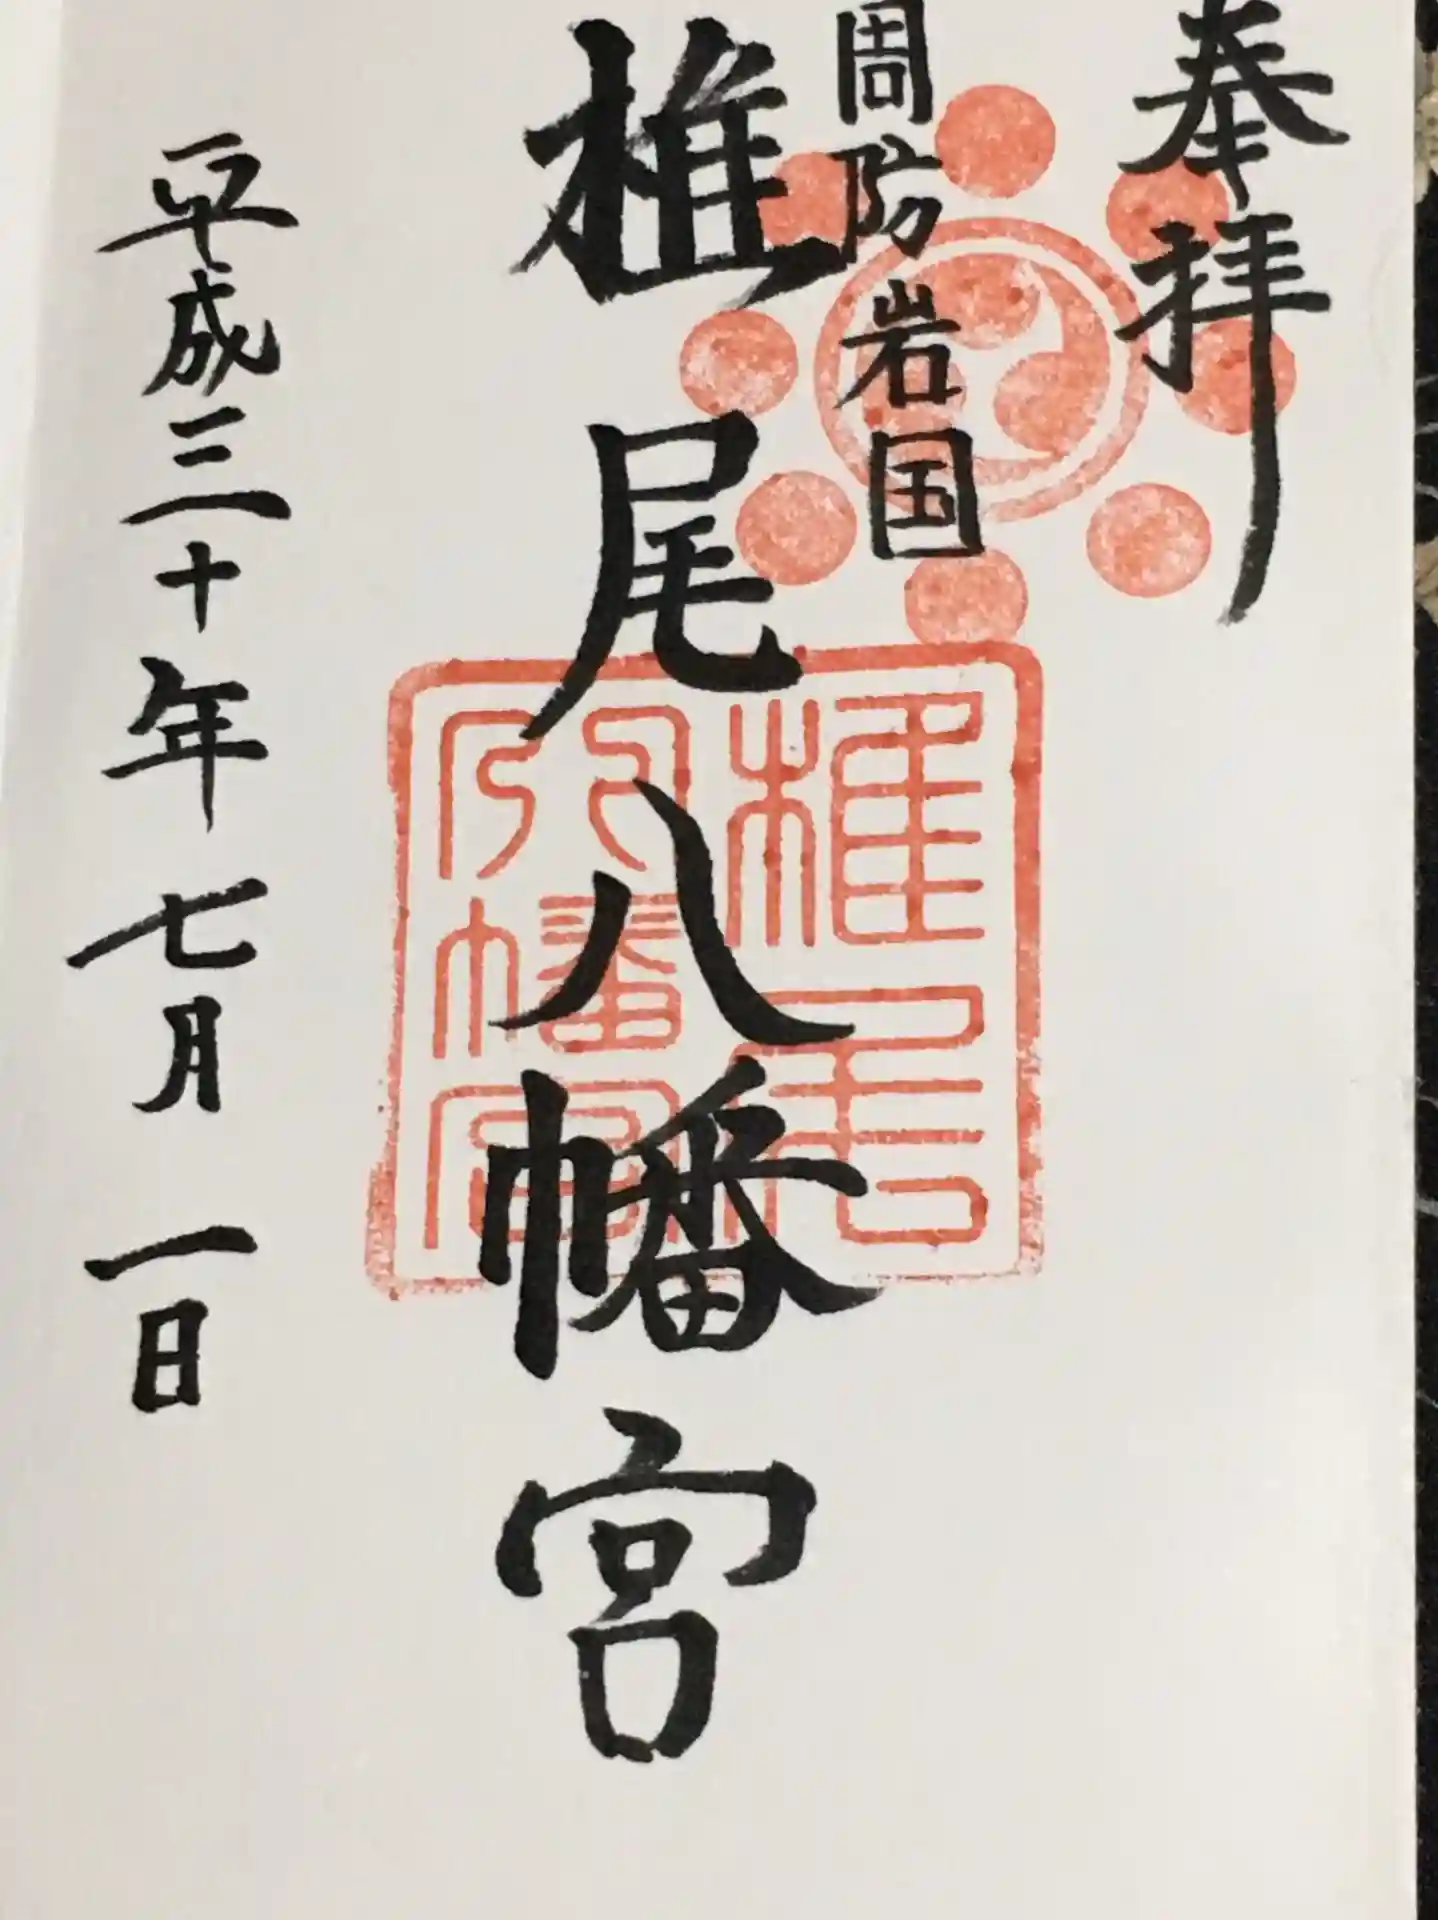 奉拝
周防岩国
椎尾八幡宮
平成三十年七月一日
椎尾
八幡宮